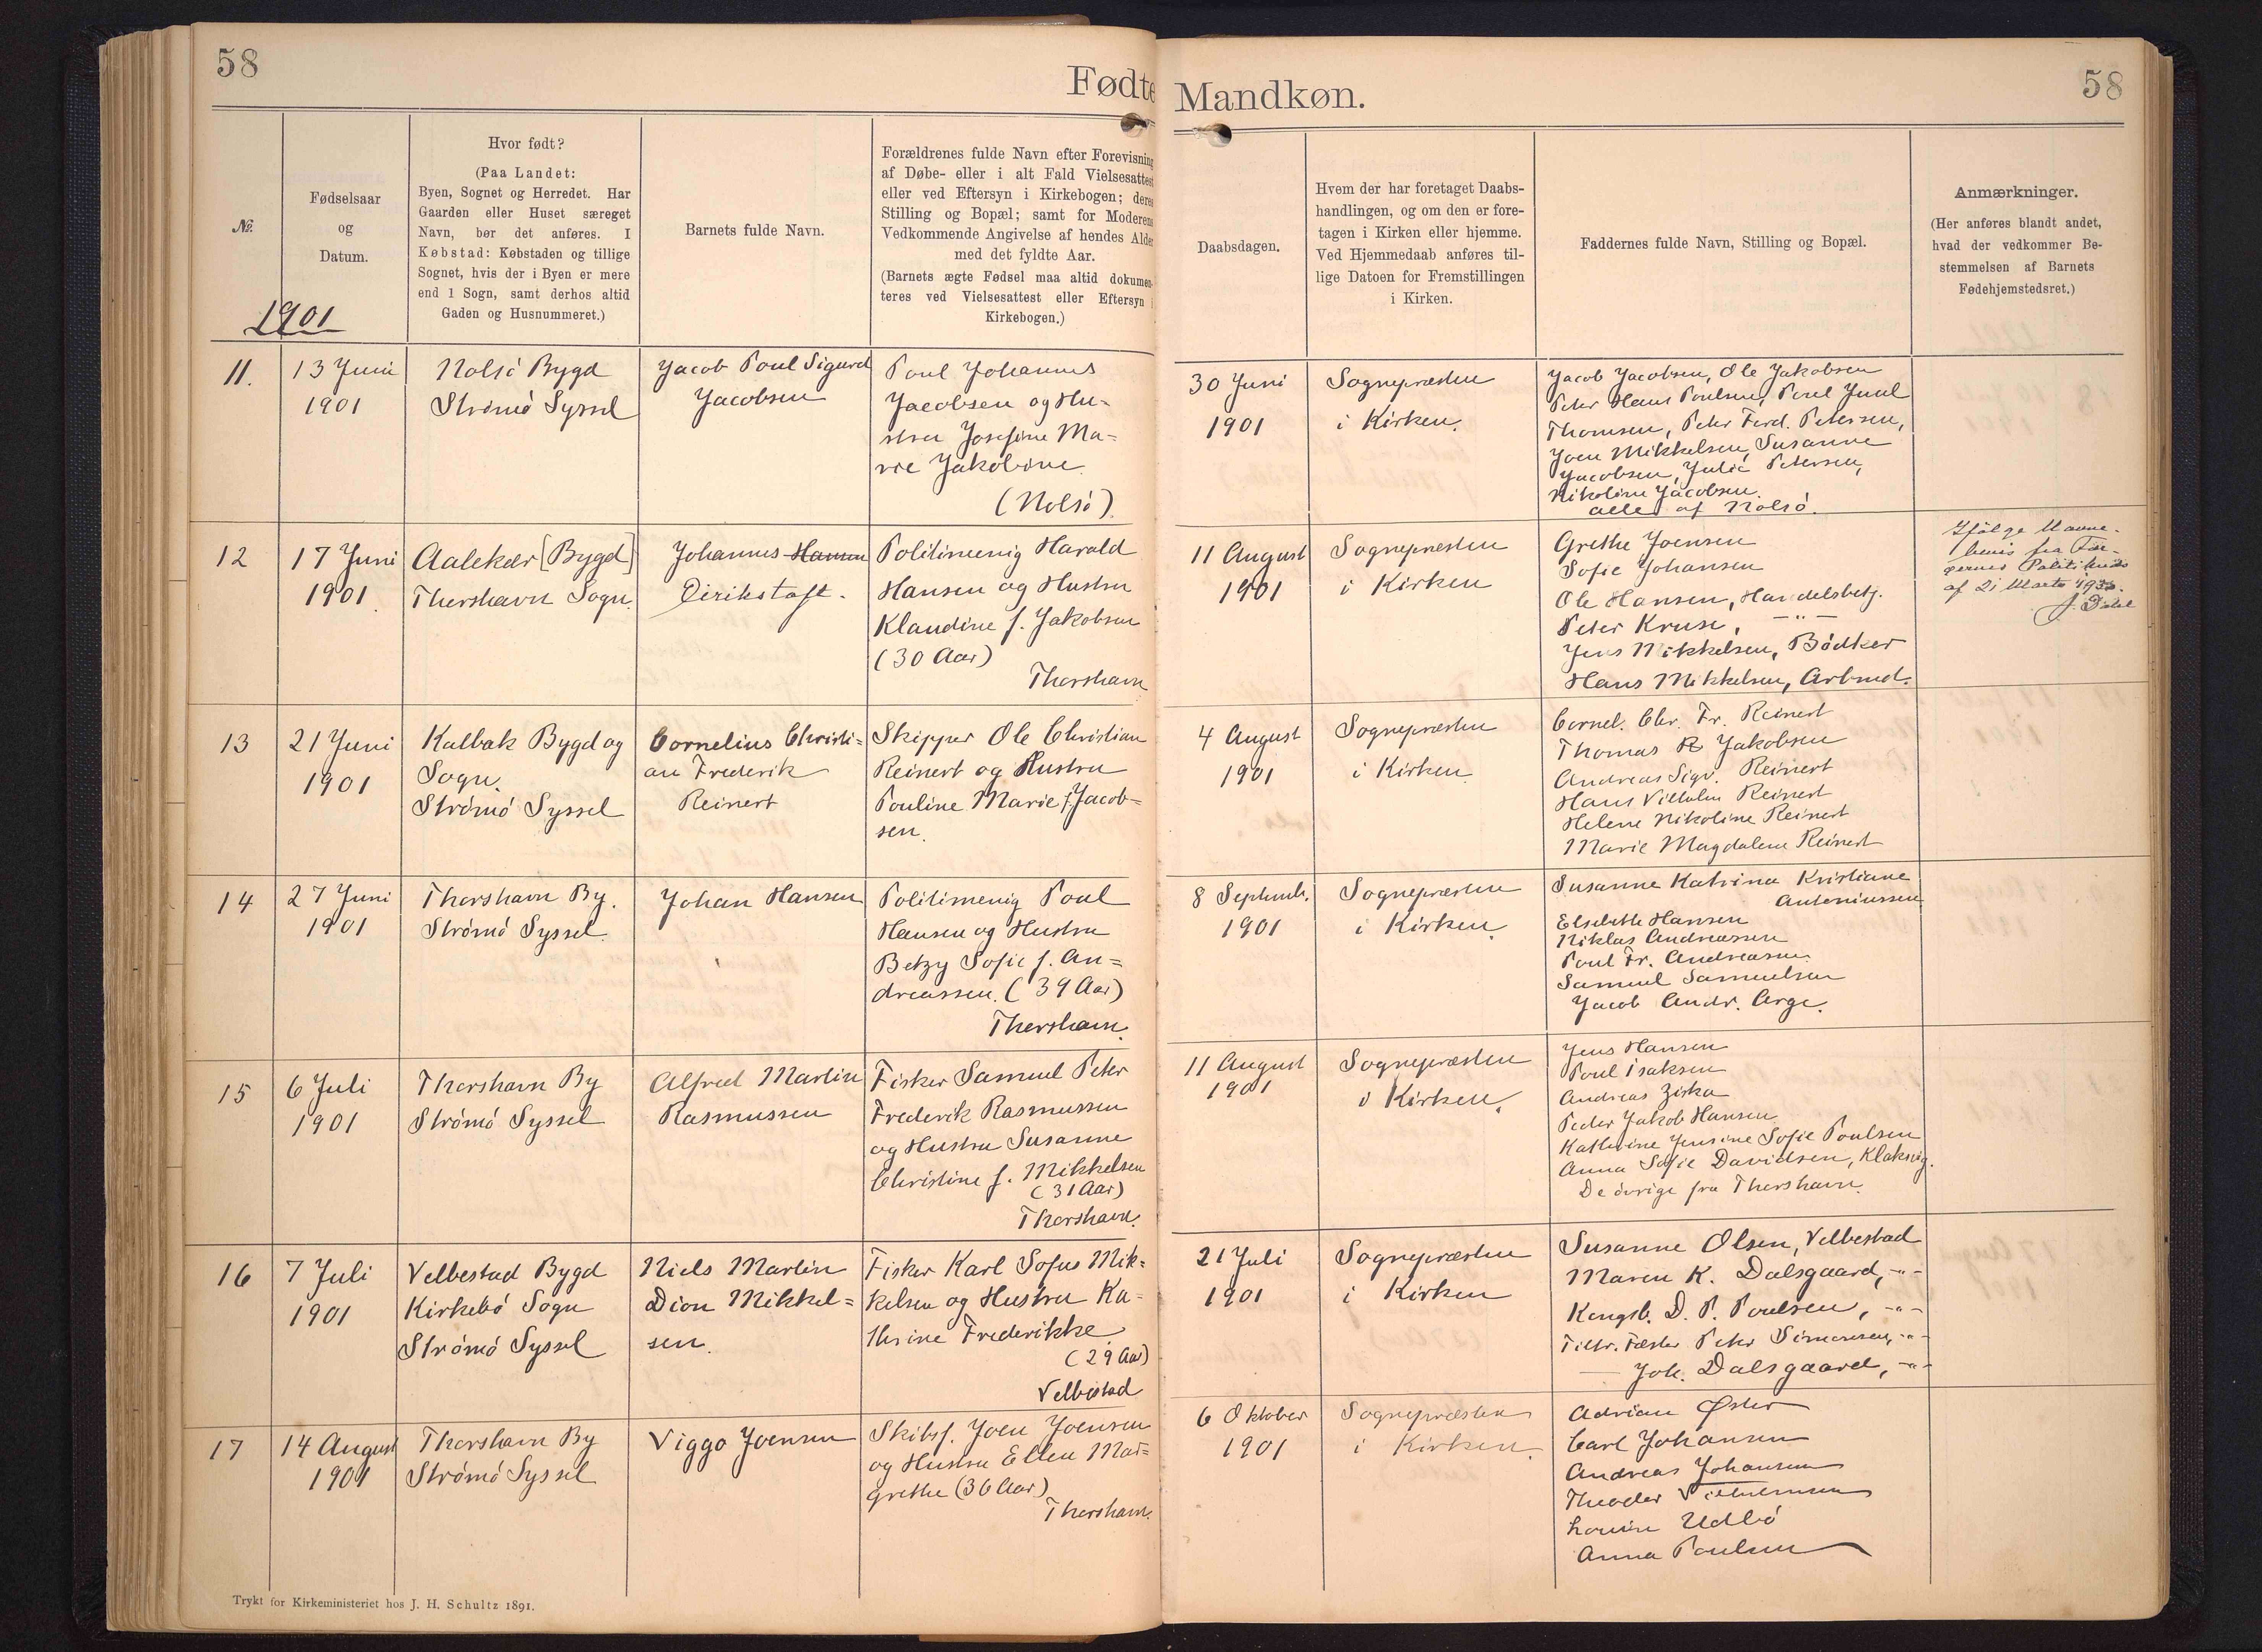 58
Fødte
Nr.
Fødselsaar
og
Datum.
1901
Hvor født?
(Paa Landet:
Byen, Sognet og Herredet. Har
Gaarden eller Huset særeget
Navn, bør det anføres. I
Købstad: Købstaden og tillige
Sognet, hvis der i Byen er mere
end 1 Sogn, samt derhos altid
Gaden og Husnummeret.)
Barnets fulde Navn.
Forældrenes fulde Navn efter Forevisning
af Døbe- eller i alt Fald Vielsesattest
eller ved Eftersyn i Kirkebogen; deres
Stilling og Bopæl; samt for Moderens
Vedkommende Angivelse af hendes Alder
med det fyldte Aar.
(Barnets ægte Fødsel maa altid dokumen-
teres ved Vielsesattest eller Eftersyn i
Kirkebogen.)
11.
13 Juni
1901
Nolsö Bygd
Strömö Syssel
Jacob Poul Sigurd
Jacobsen
Poul Johannes
Jacobsen og Hu-
stru Josefine Ma-
rie Jakobine
(Nolsö).
12
17 Juni
1901.
Aalekær [Bygd]
Thorshavn Sogn.
Johannes Hansen
Eirikstoft.
Politimenig Harald
Hansen og Hustru
Klaudine f. Jakobsen
(30 Aar)
Thorshavn
13
21 Juni
1901
Kalbak Bygd og
Sogn.
Strömö Syssel
Cornelius Christi-
an Frederik
Reinert
Skipper Ole Christian
Reinert og Hustru
Pouline Marie f. Jacob-
sen.
14
27 Juni
1901
Thorshavn By.
Strömö Syssel.
Johan Hansen
Politimenig Poul
Hansen og Hustru
Betzy Sofie f. An-
dreassen. (39 Aar)
Thorshavn.
15
6 Juli
1901
Thorshavn By
Strömö Syssel
Alfred Martin
Rasmussen
Fisker Samuel Peter
Frederik Rasmussen
og Hustru Susanne
Christine f. Mikkelsen
(31 Aar)
Thorshavn.
16
7 Juli
1901
Velbestad Bygd
Kirkebö Sogn
Strömö Syssel
Niels Martin
Dion Mikkel-
sen.
Fisker Karl Sofus Mik-
kelsen og Hustru Ka-
thrine Frederikke
(29 Aar)
Velbestad
17
14 August
1901
Thorshavn By
Strömö Syssel
Viggo Joensen
Skibsf. Joen Joensen
og Hustru Ellen Mar-
grethe (36 Aar)
Thorshavn.
Trykt for Kirkeministeriet hos J. H. Schultz 1891.
Mandkøn.
58
Daabsdagen.
Hvem der har foretaget Daabs-
handlingen, og om den er fore-
tagen i Kirken eller hjemme.
Ved Hjemmedaab anføres til-
lige Datoen for Fremstillingen
i Kirken.
Faddernes fulde Navn, Stilling og Bopæl.
Anmærkninger.
(Her anføres blandt andet,
hvad der vedkommer Be-
stemmelsen af Barnets
Fødehjemstedsret.)
30 Juni
1901
Sognepræsten
i Kirken.
Jacob Jacobsen, Ole Jakobsen
Peter Hans Poulsen, Poul Juul
Thomsen, Peter Ferd. Petersen,
Joen Mikkelsen, Susanne
Jacobsen, Julie Petersen,
Nikoline Jacobsen.
alle af Nolsö.
11 August
1901
Sognepræsten
i Kirken
Grethe Joensen
Sofie Johansen
Ole Hansen, Handelsbetj.
Peter Kruse, -"-
Jens Mikkelsen, Bödker
Hans Mikkelsen, Arbmd.
Ifölge Navne-
bevis fra Fær-
øernes Politikreds
af 21 Marts
4 August
1901
Sognepræsten
i Kirken
Cornel. Chr. Fr. Reinert
Thomas R Jakobsen
Andreas Sigv. Reinert
Hans Vilhelm Reinert
Helene Nikoline Reinert
Marie Magdalene Reinert
8 Septemb.
1901
Sognepræsten
i Kirken.
Susanne Katrina Kristiane
Antoniussen
Elsebeth Hansen
Niklas Andreassen
Poul Fr. Andreasen.
Samuel Samuelsen
Jacob Andr. Arge.
11 August
1901
Sognepræsten
i Kirken.
Jens Hansen
Poul Isaksen
Andreas Ziska
Peder Jakob Hansen
Kathrine Jensine Sofie Poulsen
Anna Sofie Davidsen, Klaksvig.
De övrige fra Thorshavn.
21 Juli
1901
Sognepræsten
i Kirken
Susanne Olsen, Velbestad
Maren K. Dalsgaard, -"-
Kongsb. D. P. Poulsen, -"-
Tiltr. Fæster Peter Simonsen, -"-
— Joh. Dalsgaard, -"-
6 Oktober
1901
Sognepræsten
i Kirken.
Adrian Øster
Carl Johansen
Andreas Johansen
Theodor Vilhelmsen
Louise Udbö
Anna Poulsen